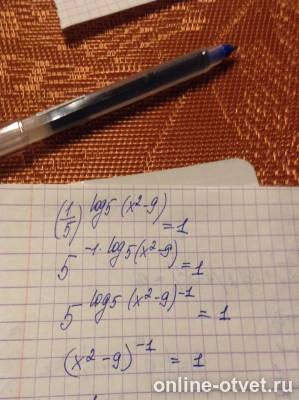 (1/5)^log₅(x²-9) = 1
5^-1·log₅(x²-9) = 1
5^log₅(x²-9)^-1 = 1
(x²-9)^-1 = 1
online-otvet.ru